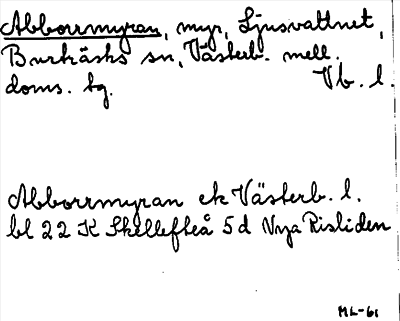 Abborrmyran, myr, Ljusvattnet,
Burträsks sn, Västerb. mell.
doms. tg. Vb. l.
Abborrmyran ek Västerb. l.
bl 22 K Skellefteå 5d Nya Risliden
ML-61